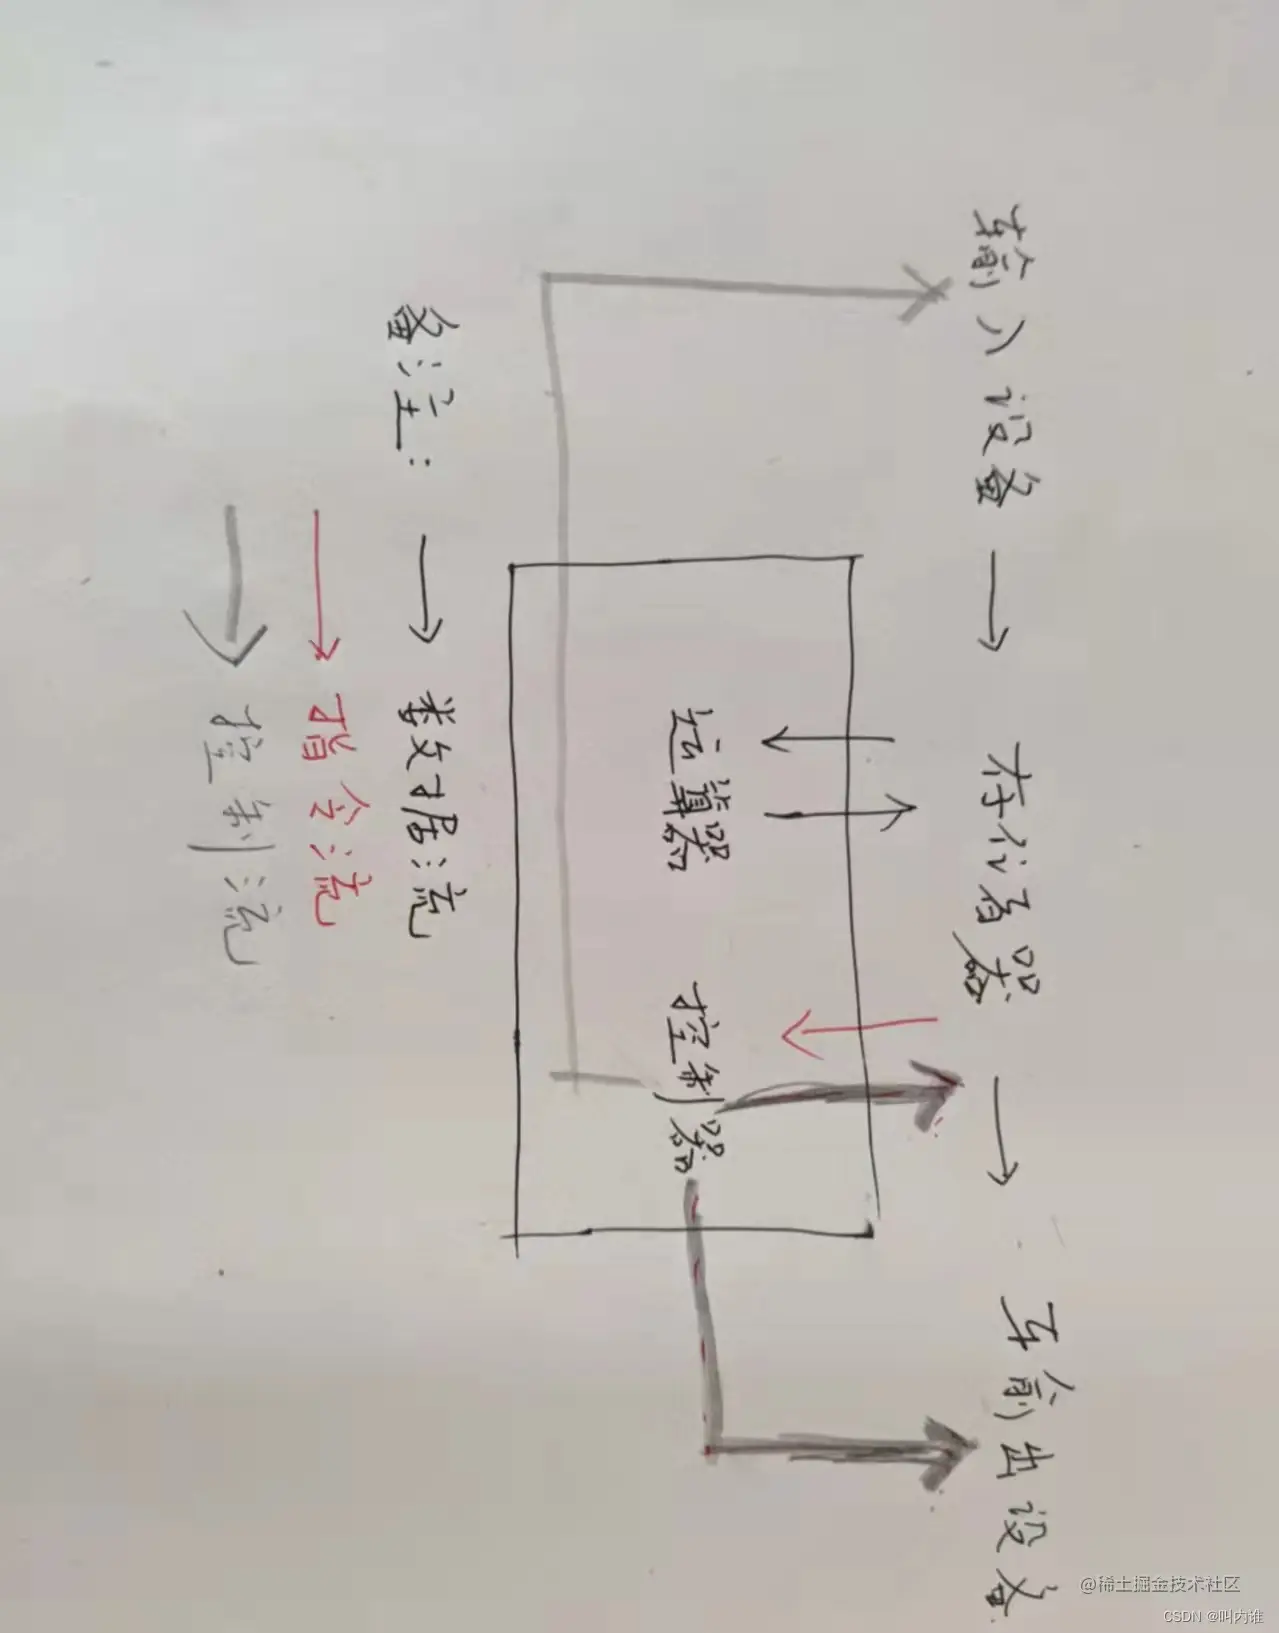 输入设备 → 存储器 → 输出设备
运算器 控制器
备注: → 数据流
→ 指令流
→ 控制流
@稀土掘金技术社区
CSDN @叫内谁